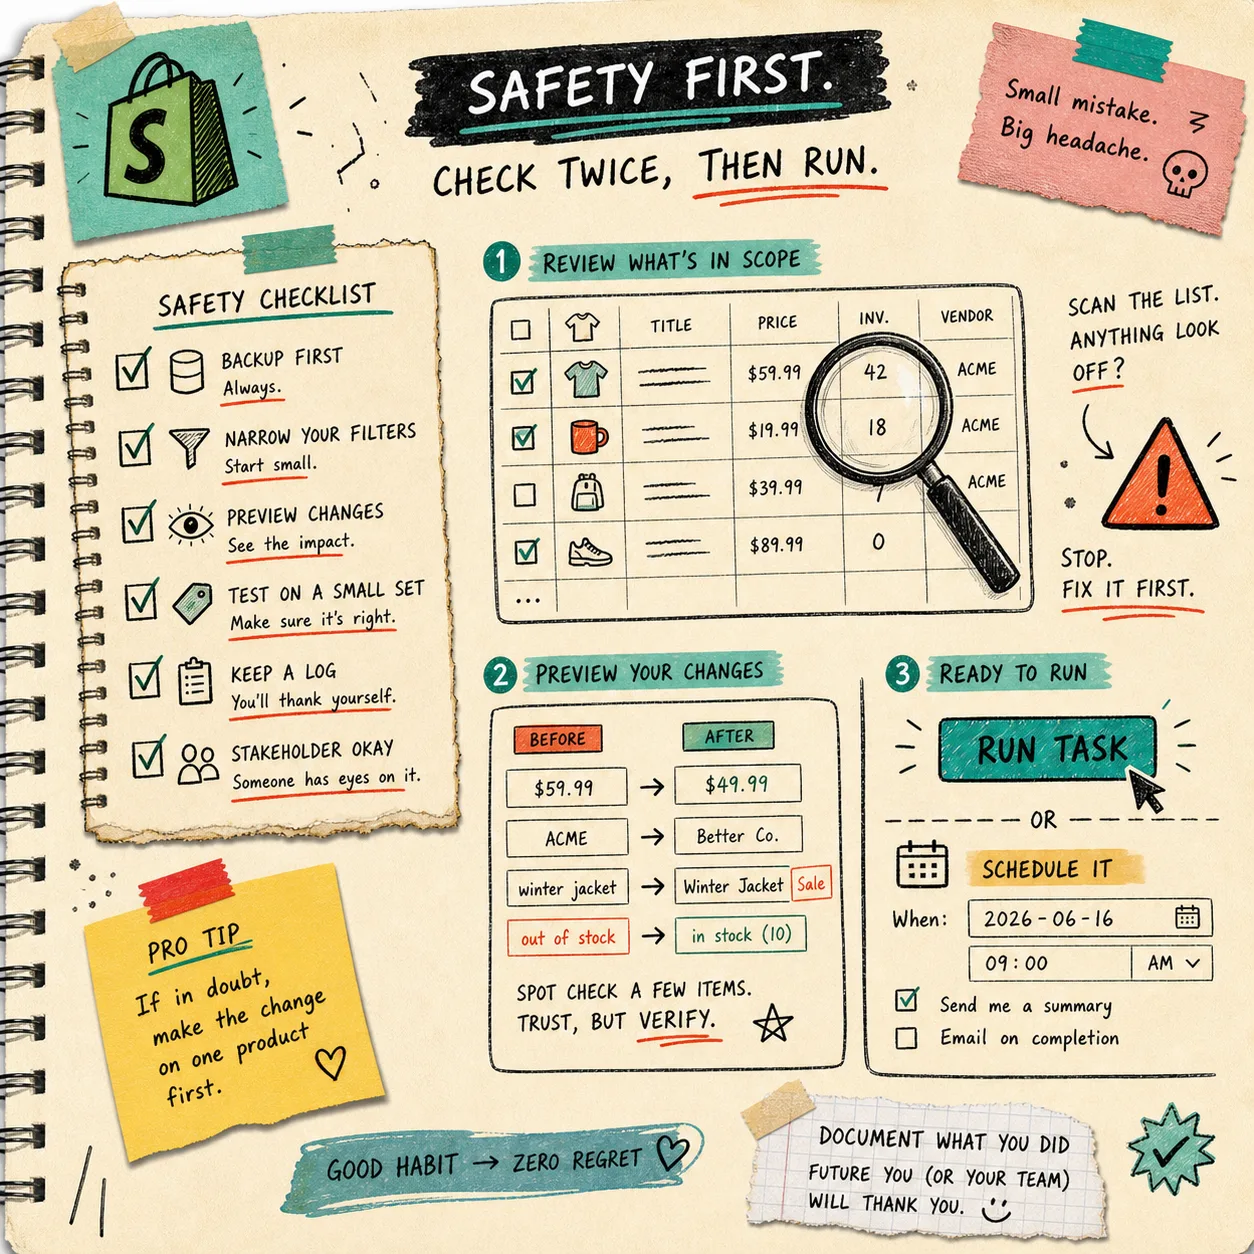 S
SAFETY FIRST.
CHECK TWICE, THEN RUN.
Small mistake.
Big headache.
SAFETY CHECKLIST
BACKUP FIRST
Always.
NARROW YOUR FILTERS
Start small.
PREVIEW CHANGES
See the impact.
TEST ON A SMALL SET
Make sure it's right.
KEEP A LOG
You'll thank yourself.
STAKEHOLDER OKAY
Someone has eyes on it.
PRO TIP
If in doubt,
make the change
on one product
first.
1 REVIEW WHAT'S IN SCOPE
TITLE PRICE INV. VENDOR
$59.99 42 ACME
$19.99 18 ACME
$39.99 ACME
$89.99 0
...
SCAN THE LIST.
ANYTHING LOOK
OFF?
!
STOP.
FIX IT FIRST.
2 PREVIEW YOUR CHANGES
BEFORE AFTER
$59.99 → $49.99
ACME → Better Co.
winter jacket → Winter Jacket Sale
out of stock → in stock (10)
SPOT CHECK A FEW ITEMS.
TRUST, BUT VERIFY.
3 READY TO RUN
RUN TASK
OR
SCHEDULE IT
When: 2026-06-16
09:00 AM
Send me a summary
Email on completion
GOOD HABIT → ZERO REGRET
DOCUMENT WHAT YOU DID
FUTURE YOU (OR YOUR TEAM)
WILL THANK YOU.